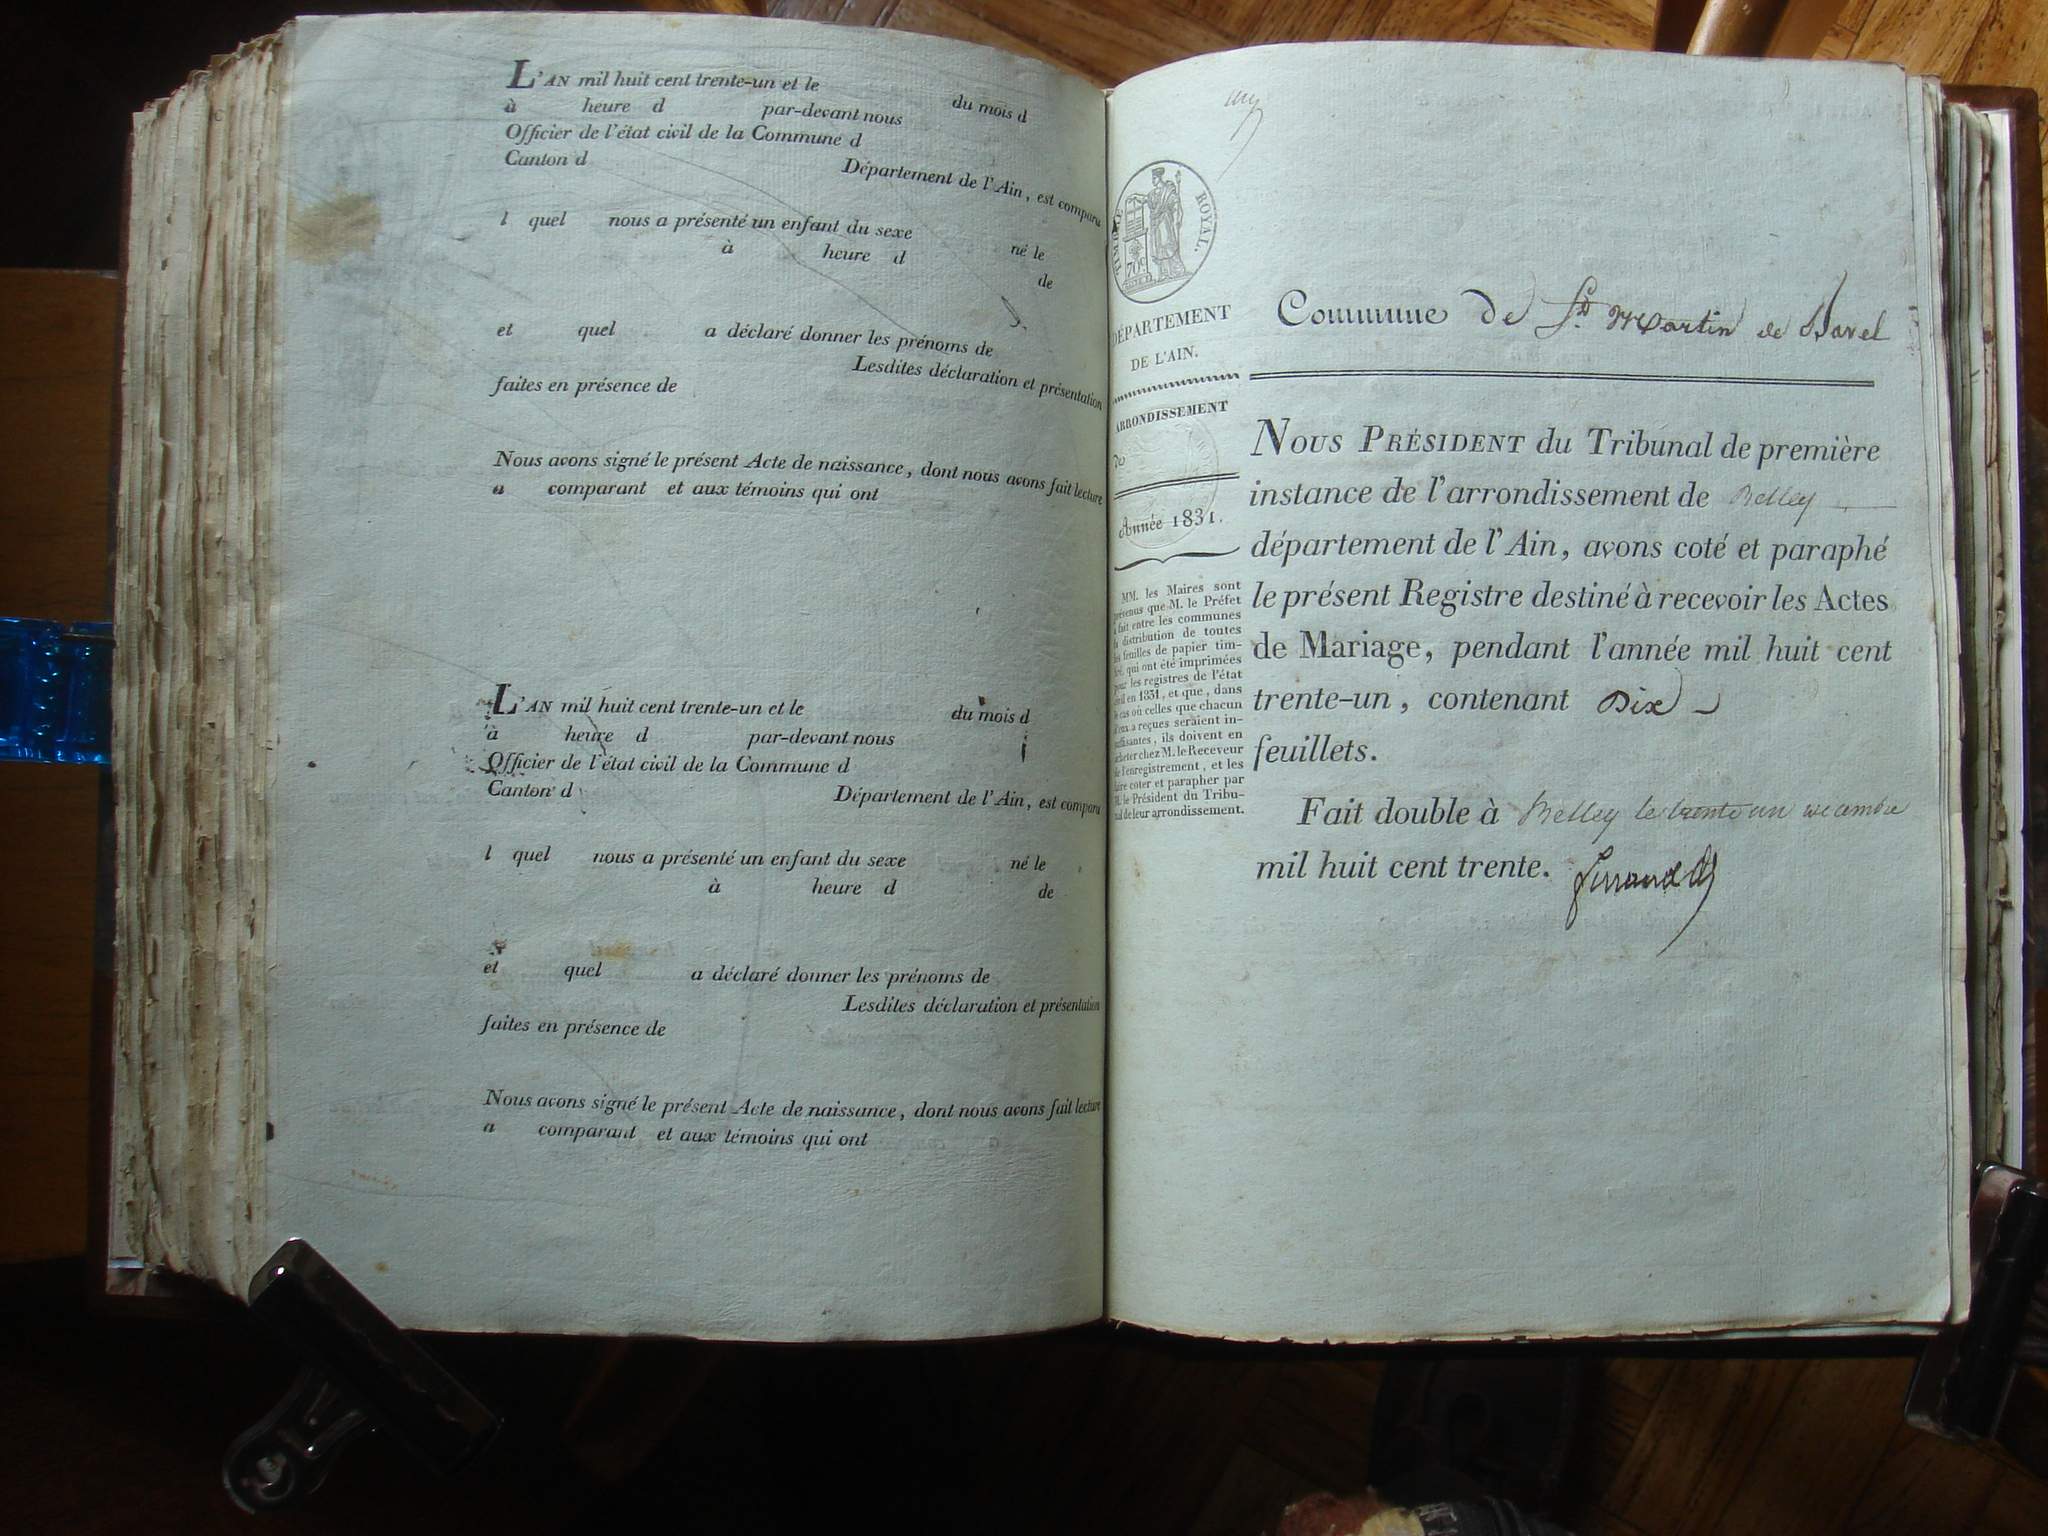 L'AN mil huit cent trente-un et le du mois d
à heure d par-devant nous
Officier de l'état civil de la Commune d
Canton d Département de l'Ain, est comparu
l quel nous a présenté un enfant du sexe né le
à heure d de
et quel a déclaré donner les prénoms de
Lesdites déclaration et présentation
faites en présence de
Nous avons signé le présent Acte de naissance, dont nous avons fait lecture
a comparant et aux témoins qui ont
L'AN mil huit cent trente-un et le du mois d
à heure d par-devant nous
Officier de l'état civil de la Commune d
Canton d Département de l'Ain, est comparu
l quel nous a présenté un enfant du sexe né le
à heure d de
et quel a déclaré donner les prénoms de
Lesdites déclaration et présentation
faites en présence de
Nous avons signé le présent Acte de naissance, dont nous avons fait lecture
a comparant et aux témoins qui ont
TIMBRE ROYAL.
70c
DÉPARTEMENT
DE L'AIN.
ARRONDISSEMENT
de
Année 1831.
MM. les Maires sont
prévenus que M. le Préfet
a fait entre les communes
la distribution de toutes
les feuilles de papier tim-
bré, qui ont été imprimées
pour les registres de l'état
civil en 1831, et que, dans
le cas où celles que chacun
d'eux a reçues seraient in-
suffisantes, ils doivent en
acheter chez M. le Receveur
de l'enregistrement, et les
faire coter et parapher par
M. le Président du Tribu-
nal de leur arrondissement.
Commune de St Martin de Bavel
NOUS PRÉSIDENT du Tribunal de première
instance de l'arrondissement de Belley
département de l'Ain, avons coté et paraphé
le présent Registre destiné à recevoir les Actes
de Mariage, pendant l'année mil huit cent
trente-un, contenant Dix
feuillets.
Fait double à Belley le trente un décembre
mil huit cent trente.